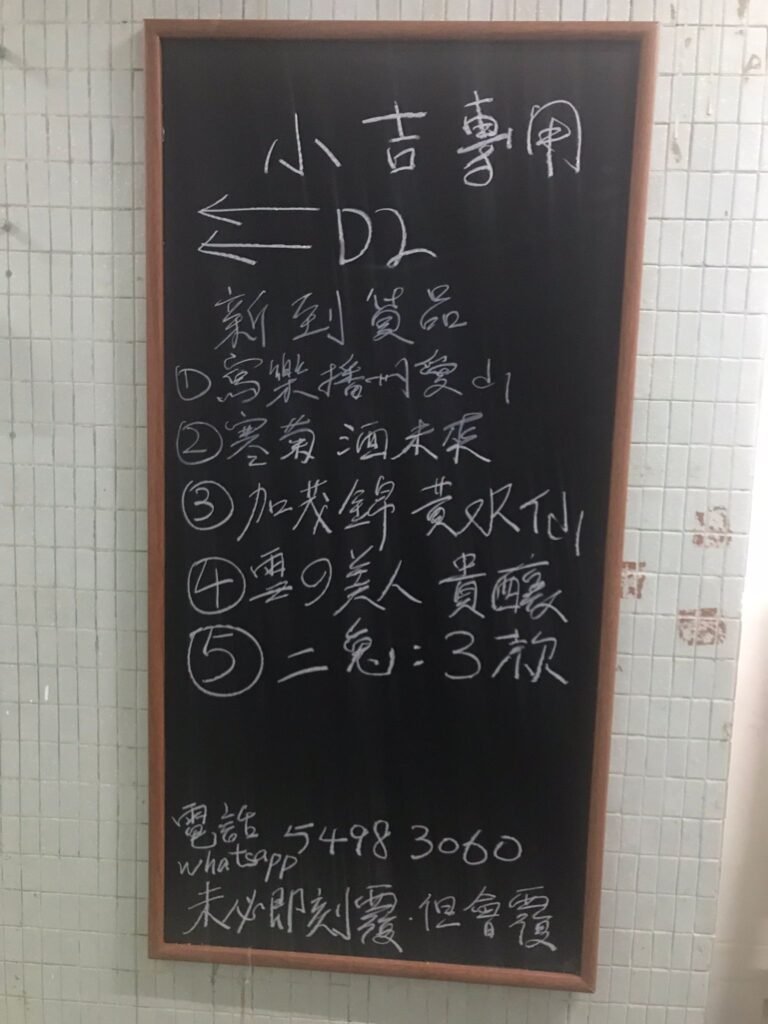 小吉專用
← ← D2
新到貨品
① 寫樂播州愛山
② 寒菊 酒未來
③ 加茂錦 黃水仙
④ 雲の美人 貴釀
⑤ 二兔：3款
電話 5498 3060
whatsapp
未必即刻覆．但會覆